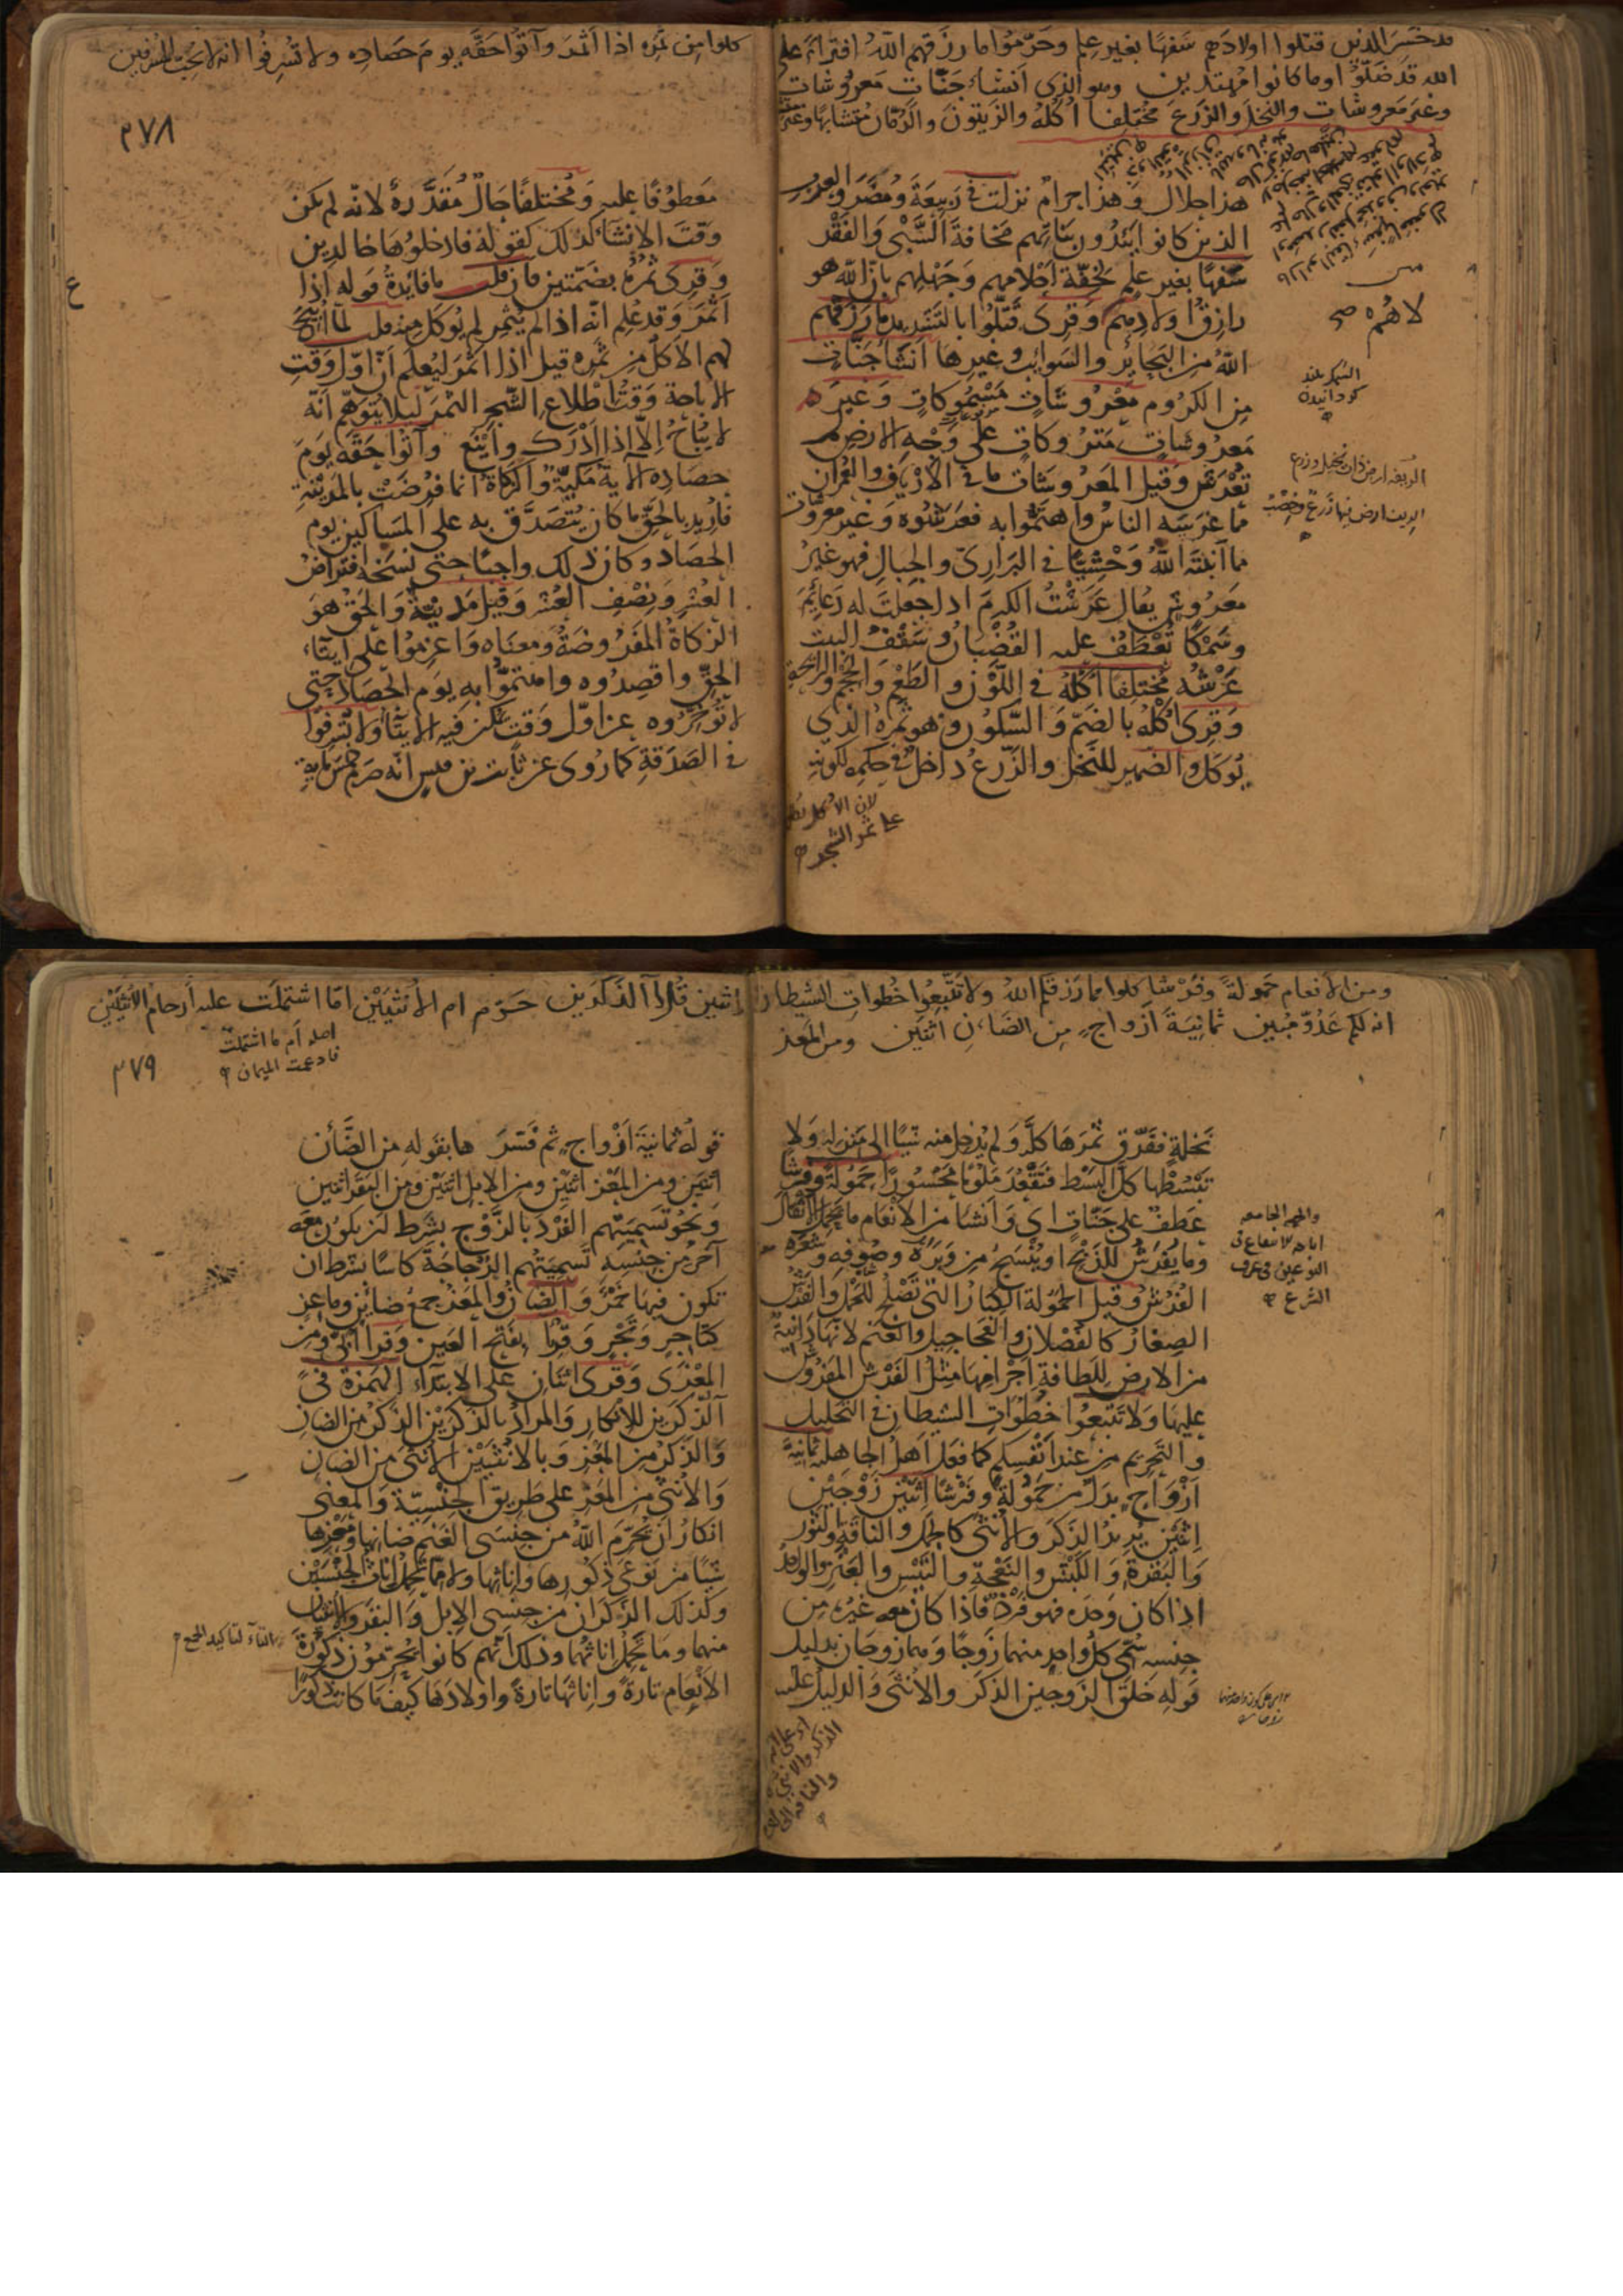 قد خسر الذين قتلوا اولادهم سفها بغير علم وحرموا ما رزقهم الله افتراء على
الله قد ضلوا وما كانوا مهتدين وهو الذي انشأ جنات معروشات
وغير معروشات والنخل والزرع مختلفا اكله والزيتون والرمان متشابها وغير
هذا حلال وهذا حرام نزلت في ربيعة ومضر والعرب
الذين كانوا يئدون بناتهم مخافة السبي والفقر
سفها بغير علم لخفة احلامهم وجهلهم بان الله هو
رازق اولادهم وقرى قتلوا بالتشديد ما رزقهم
الله من البحاير والسوايب وغيرها انشأ جنات
من الكروم معروشات مسموكات وغير
معروشات متروكات على وجه الارض لم
تعرش وقيل المعروشات ما في الارياف والعمران
مما غرسه الناس واهتموا به فعرشوه وغير معروشات
مما انبته الله وحشيا في البراري والجبال فهو غير
معروش يقال عرشت الكرم اذا جعلت له دعائم
وسمكا تعطف عليه القضبان وسقف البيت
عرشه مختلفا اكله في اللون والطعم والحجم والرائحة
وقرى اكله بالضم والسكون وهو ثمره الذي
يوكل والضمير للنخل والزرع داخل في حكمه لكونه
لاهم هم صح
كلوا من ثمره اذا اثمر وآتوا حقه يوم حصاده ولا تسرفوا انه لا يحب المسرفين
٣٧٨
معطوفا عليه ومختلفا حال مقدرة لانه لم يكن
وقت الانشاء كذلك كقوله فادخلوها خالدين
وقرى ثمره بضمتين فان قلت ما فايدة قوله اذا
اثمر وقد علم انه اذا لم يثمر لم يوكل منه قلت لما ابيح
لهم الاكل من ثمره قيل اذا اثمر ليعلم ان اول وقت
الاباحة وقت اطلاع الشجر الثمر ليلا يتوهم انه
لا يباح الا اذا ادرك واينع وآتوا حقه يوم
حصاده الآية مكية والزكاة انما فرضت بالمدينة
فاريد بالحق ما كان يتصدق به على المساكين يوم
الحصاد وكان ذلك واجبا حتى نسخه افتراض
العشر ونصف العشر وقيل مدنية والحق هو
الزكاة المفروضة ومعناه واعزموا على ايتاء
الحق واقصدوه واهتموا به يوم الحصاد حتى
لا تؤخروه عن اول وقت يمكن فيه الايتاء ولا تسرفوا
في الصدقة كما روى عن ثابت بن قيس انه صرم خمس ماية
ومن الانعام حمولة وفرشا كلوا مما رزقكم الله ولا تتبعوا خطوات الشيطان
انه لكم عدو مبين ثمانية ازواج من الضان اثنين ومن المعز
نخلة ففرق ثمرها كله ولم يدخل منه شيا الى منزله ولا
تبسطها كل البسط فتقعد ملوما محسورا حمولة وفرشا
عطف على جنات اي وانشا من الانعام ما يحمل الاثقال
وما يفرش للذبح او ينسج من وبره وصوفه وشعره
الفرش وقيل الحمولة الكبار التي تصلح للحمل والفرش
الصغار كالفصلان والعجاجيل والغنم لانها دانية
من الارض للطافة اجرامها مثل الفرش المفروش
عليها ولا تتبعوا خطوات الشيطان في التحليل
والتحريم من عند انفسكم كما فعل اهل الجاهلية ثمانية
ازواج بدل من حمولة وفرشا اثنين زوجين
اثنين يريد الذكر والانثى كالجمل والناقة والثور
والبقرة والكبش والنعجة والتيس والعنز والواحد
اذا كان وحده فهو فرد فاذا كان معه غيره من
جنسه سمي كل واحد منهما زوجا وهما زوجان بدليل
قوله خلق الزوجين الذكر والانثى والدليل عليه
اثنين قل آلذكرين حرم ام الانثيين اما اشتملت عليه ارحام الانثيين
اصله ام ما اشتملت
فادغمت الميمان
٣٧٩
قوله ثمانية ازواج ثم فسر ها بقوله من الضأن
اثنين ومن المعز اثنين ومن الابل اثنين ومن البقر اثنين
ونحو تسميتهم الفرد بالزوج بشرط ان يكون معه
آخر من جنسه تسميتهم الزجاجة كاسا بشرط ان
تكون فيها خمر والضان والمعز جمع ضائن وماعز
كتاجر وتجر وقرئا بفتح العين وقرا ابي ومن
المعزى وقرى اثنان على الابتداء الهمزة في
آلذكرين للانكار والمراد بالذكرين الذكر من الضان
والذكر من المعز وبالانثيين الانثى من الضان
والانثى من المعز على طريق الجنسية والمعنى
انكار ان يحرم الله من جنسي الغنم ضانها ومعزها
شيا من نوعي ذكورها واناثها ولا مما تحمل اناث الجنسين
وكذلك الذكران من جنسي الابل والبقر والانثيان
منهما وما تحمل اناثهما وذلك انهم كانوا يحرمون ذكورة
الانعام تارة واناثها تارة واولادها كيف ما كانت ذكورا